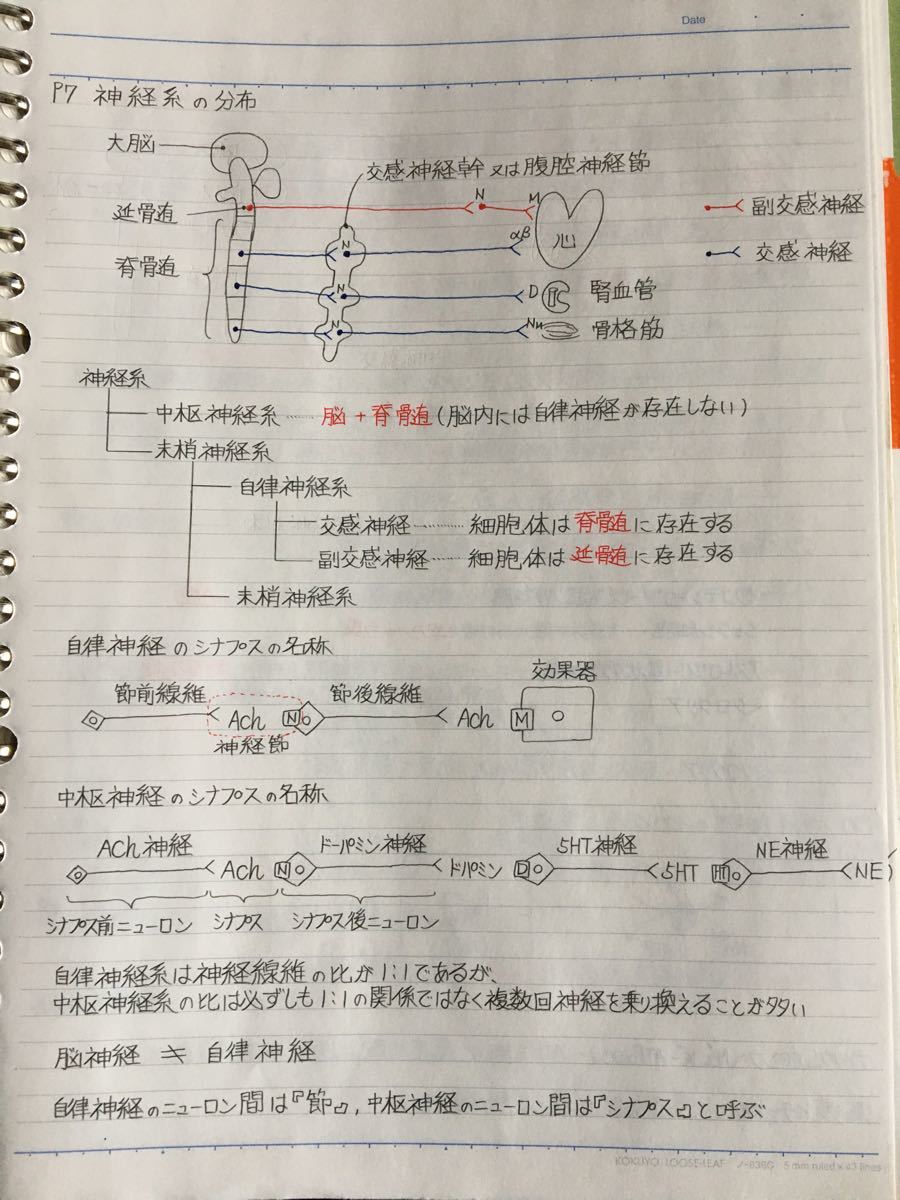 Date
P7 神経系の分布
大脳
交感神経幹又は腹腔神経節
延骨道 N M 副交感神経
αβ 心
脊骨道 N 交感神経
N D 腎血管
N NM 骨格筋
神経系
中枢神経系 …… 脳 + 脊骨道 (脳内には自律神経が存在しない)
末梢神経系
自律神経系
交感神経 ……… 細胞体は脊骨道に存在する
副交感神経 …… 細胞体は延骨道に存在する
末梢神経系
自律神経のシナプスの名称
効果器
節前線維 節後線維
Ach N Ach M
神経節
中枢神経のシナプスの名称
ACh神経 ドーパミン神経 5HT神経 NE神経
Ach N ドパミン D 5HT HT NE
シナプス前ニューロン シナプス シナプス後ニューロン
自律神経系は神経線維の比が1:1であるが、
中枢神経系の比は必ずしも1:1の関係ではなく複数回神経を乗り換えることが多い
脳神経 ≒ 自律神経
自律神経のニューロン間は『節』, 中枢神経のニューロン間は『シナプス』と呼ぶ
KOKUYO LOOSE-LEAF ノ-836G 5 mm ruled × 43 lines